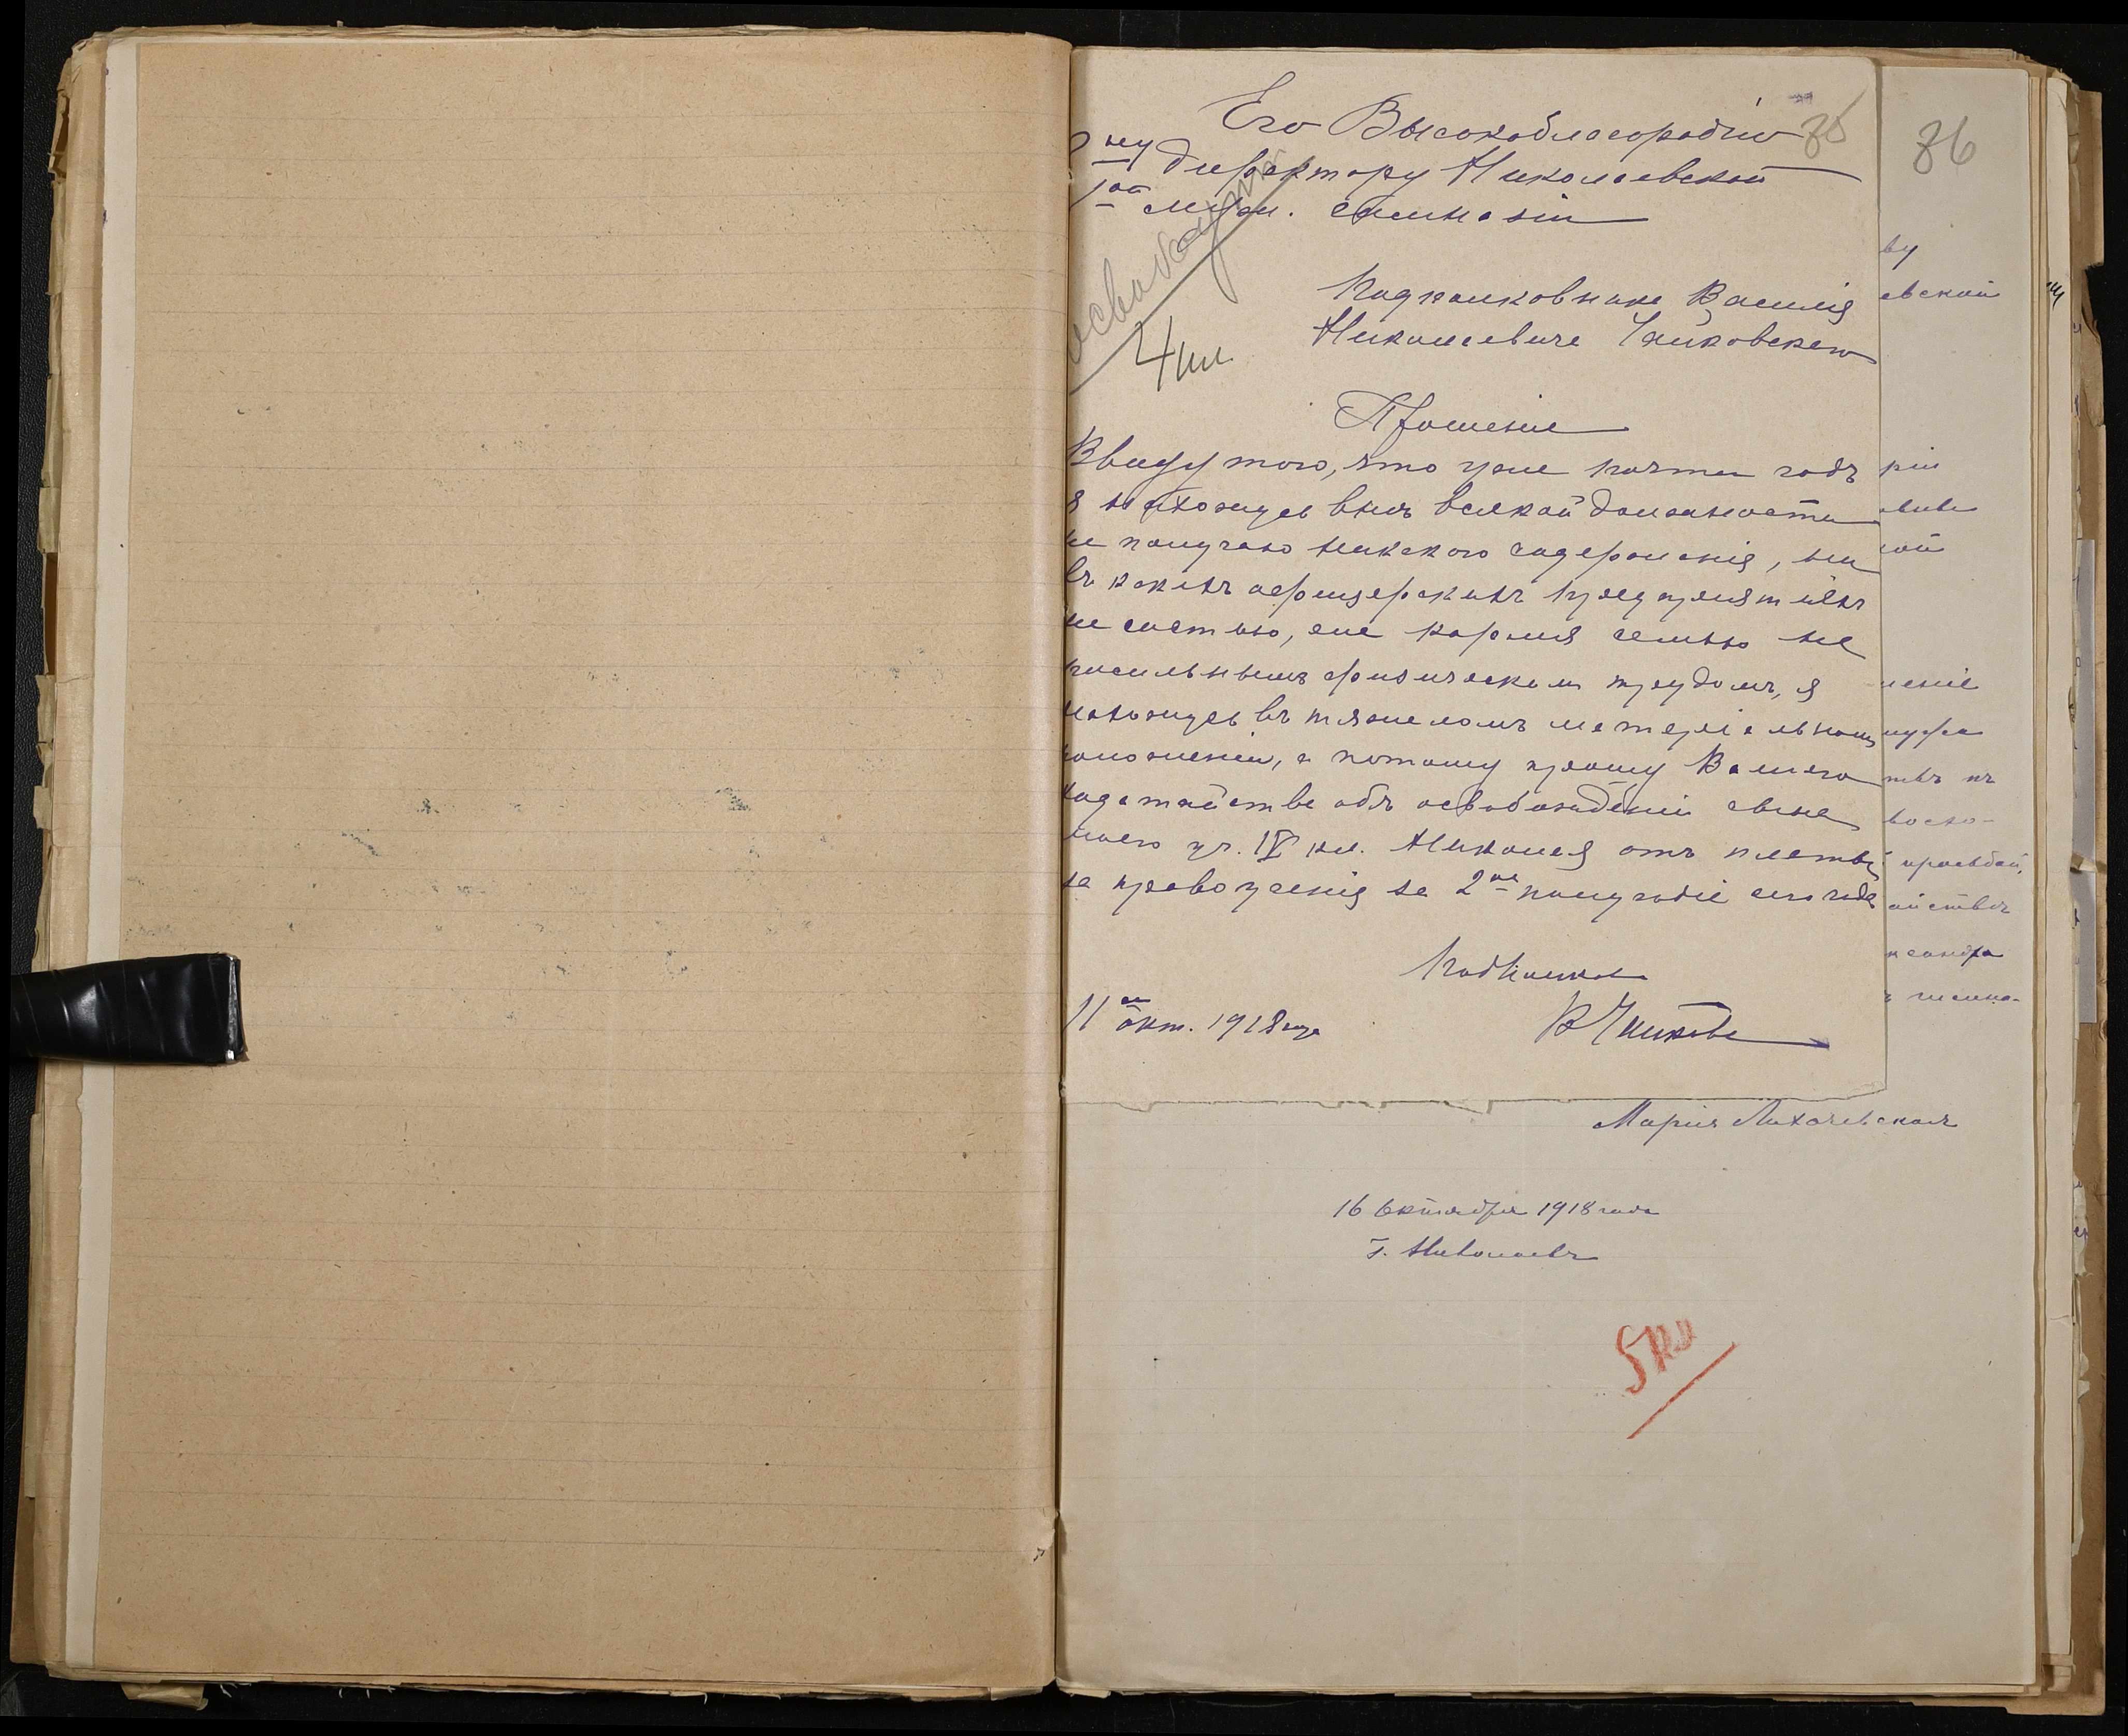 Его Высокоблагородію
85
ну директору Николаевской
1ой мужск. гимназіи
освободить
4 кл
Подполковника Василія
Николаевича Чайковского
Прошеніе
Ввиду того, что уже почти годъ
я нахожусь внѣ всякой должности
не получаю никакого содержанія, ни
въ какихъ офицерскихъ предпріятіяхъ
не состою, еле кормя семью не
посильнымъ физическим трудомъ, я
нахожусь въ тяжеломъ матеріальномъ
положеніи, а потому прошу Вашего
ходатайства объ освобожденіи сына
моего уч. IV кл. Николая отъ платы
за правоученія за 2ое полугодіе сего года
Подполк
11го окт. 1918 года
86
ву
евской
ой
денія
просьбой,
айствѣ
ксандра
Марія Лихачевская
16 Октября 1918 года
г. Николаевъ
5 кл